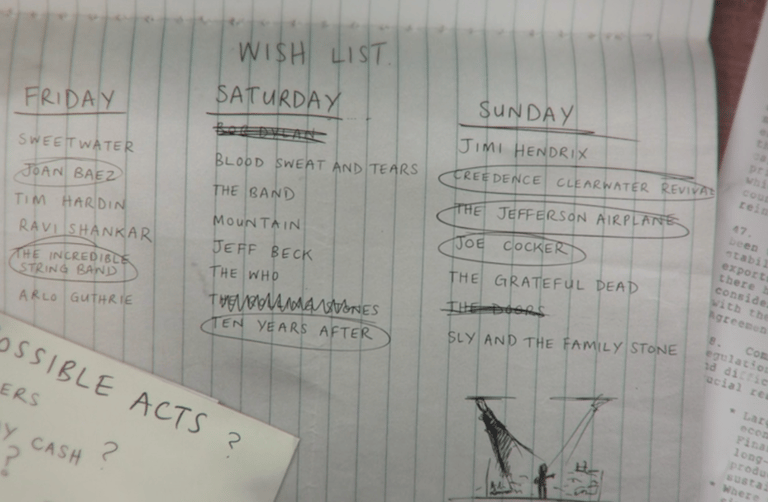 WISH LIST.
FRIDAY
SWEETWATER
JOAN BAEZ
TIM HARDIN
RAVI SHANKAR
THE INCREDIBLE
STRING BAND
ARLO GUTHRIE
SATURDAY
BOB DYLAN
BLOOD SWEAT AND TEARS
THE BAND
MOUNTAIN
JEFF BECK
THE WHO
TEN YEARS AFTER
SUNDAY
JIMI HENDRIX
CREEDENCE CLEARWATER REVIVAL
THE JEFFERSON AIRPLANE
JOE COCKER
THE GRATEFUL DEAD
THE DOORS
SLY AND THE FAMILY STONE
OSSIBLE ACTS ?
ERS
Y CASH ?
?
47.
been
stabil
export
there b
conside
with the
Agreemen
8. Com
egulation
nd diffic
ucial re
* Larg
econ
Finan
long-
produ
sustai
* Where